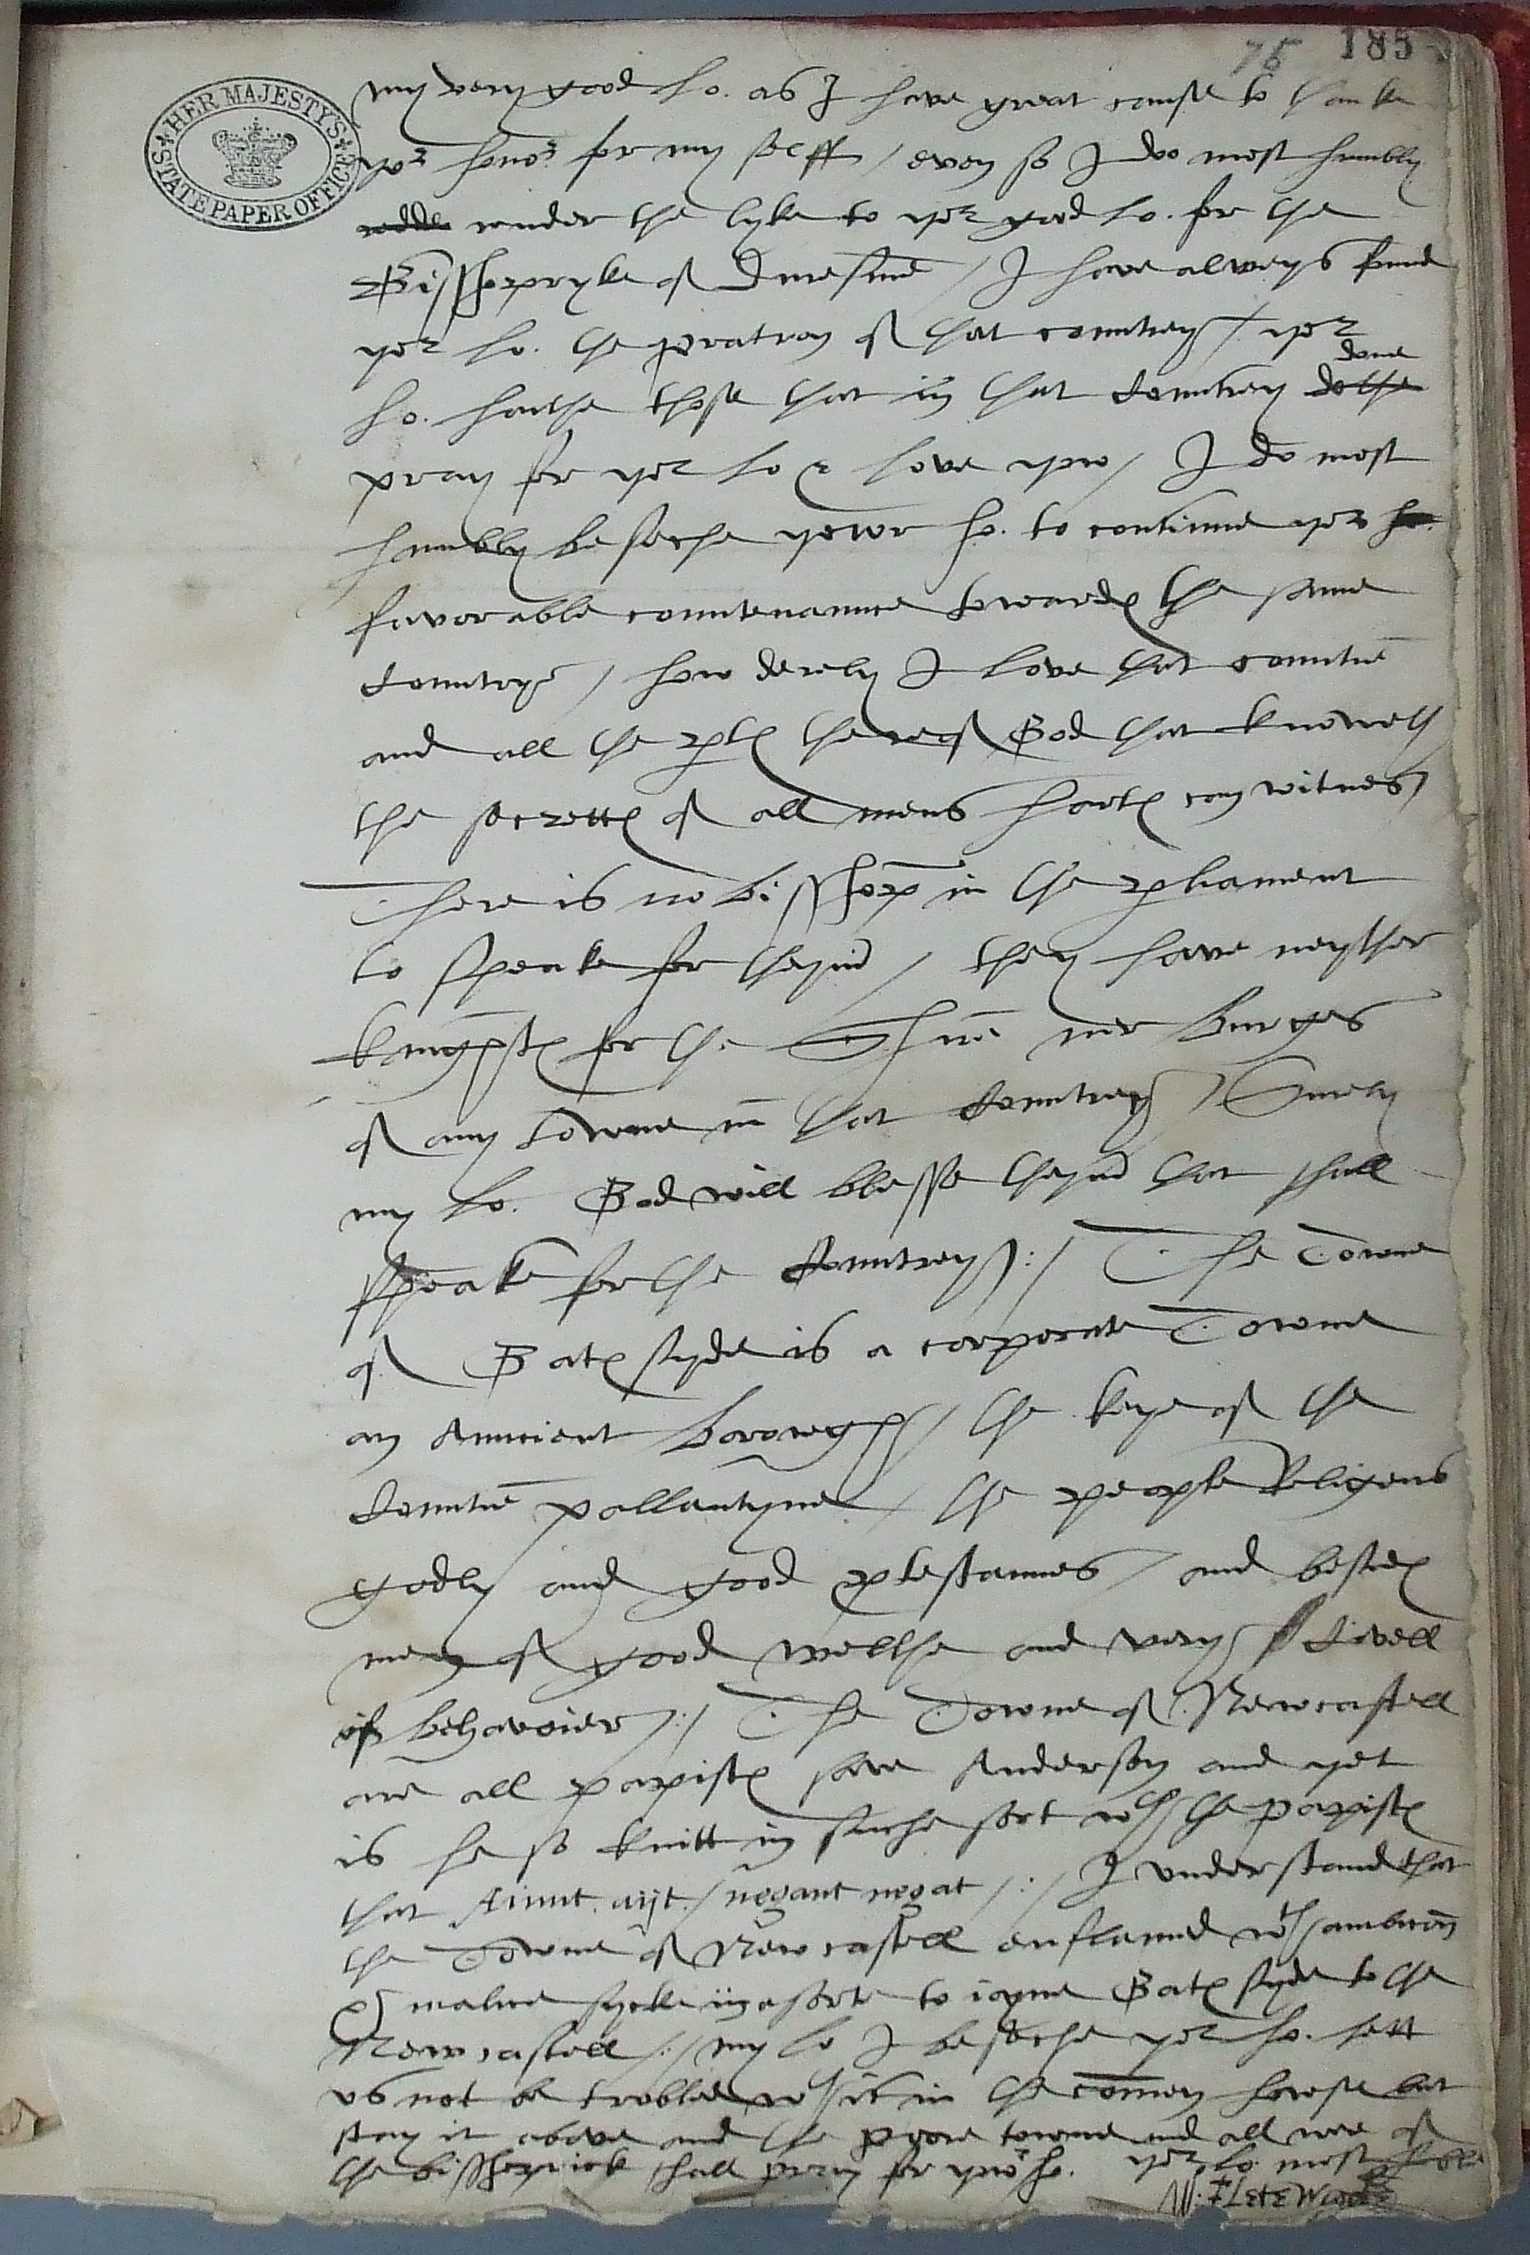 75 185
HER MAJESTY'S STATE PAPER OFFICE
my very good Lo. as I have great cause to thanke
yor honor for my selff / even so I do most humbly
render the lyke to yor good Lo. for the
Bisshopryke of Duresme / I have always found
yor Lo. the patron of that countrey / yor
ho. hathe those that in that Countrey done dothe
pray for yor Lo & love yow / I do most
humbly beseche yowr ho. to continue yor ho.
favorable countenaunce towardes the same
Countrye / how derely I love that countrie
and all the ptes thereof God that knoweth
the secrettes of all mens hartes can witnes /
There is no bisshop in the pliament
to speake for theym / they have neyther
knightes for the Shire nor burges
of any towne in that Countrey / Surely
my Lo. God will blesse theym that shall
speake for the Countrey :/ The Towne
of Gatessyde is a corporate Towne
an Auncient borowgh / the keye of the
Countie pallantyne / the people Religous
godly and good ptestannes / and besides
men of good welthe and very Civell
of behavoier :/ The Towne of Newcastell
are all papistes save Anderson and yet
is he so knitt in suche sort wth the papistes
that Aiunt aijt / negant negat /:/ I understand that
the Towne of Newcastell enflamed wth ambicon
& malice in sorte to ioyne Gatessyde to the
Newcastell /:/ my Lo I beseche yor ho. lett
us not be trobled wth it in the comen howse but
stay it above and the poore towne and all we of
the bisshoprick shall pray for yowr ho. yor Lo. most
W. Fletewoode